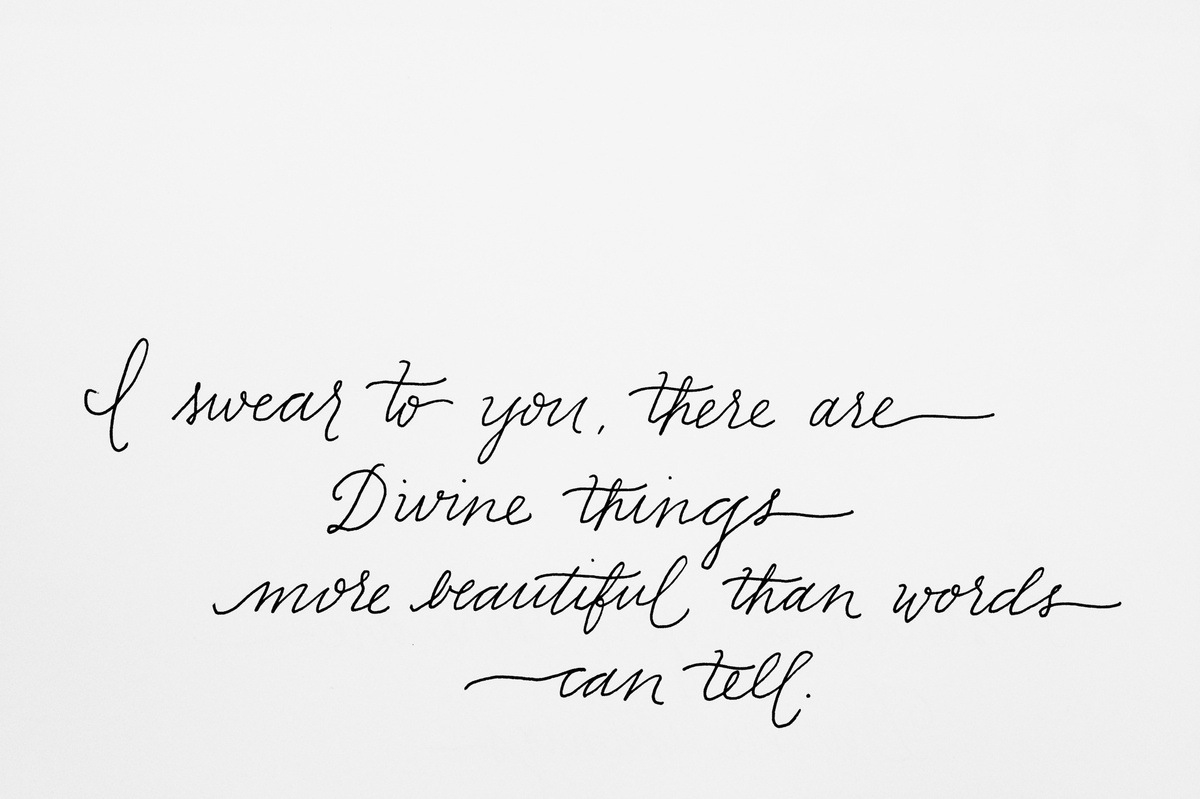 I swear to you, there are
Divine things
more beautiful than words
can tell.